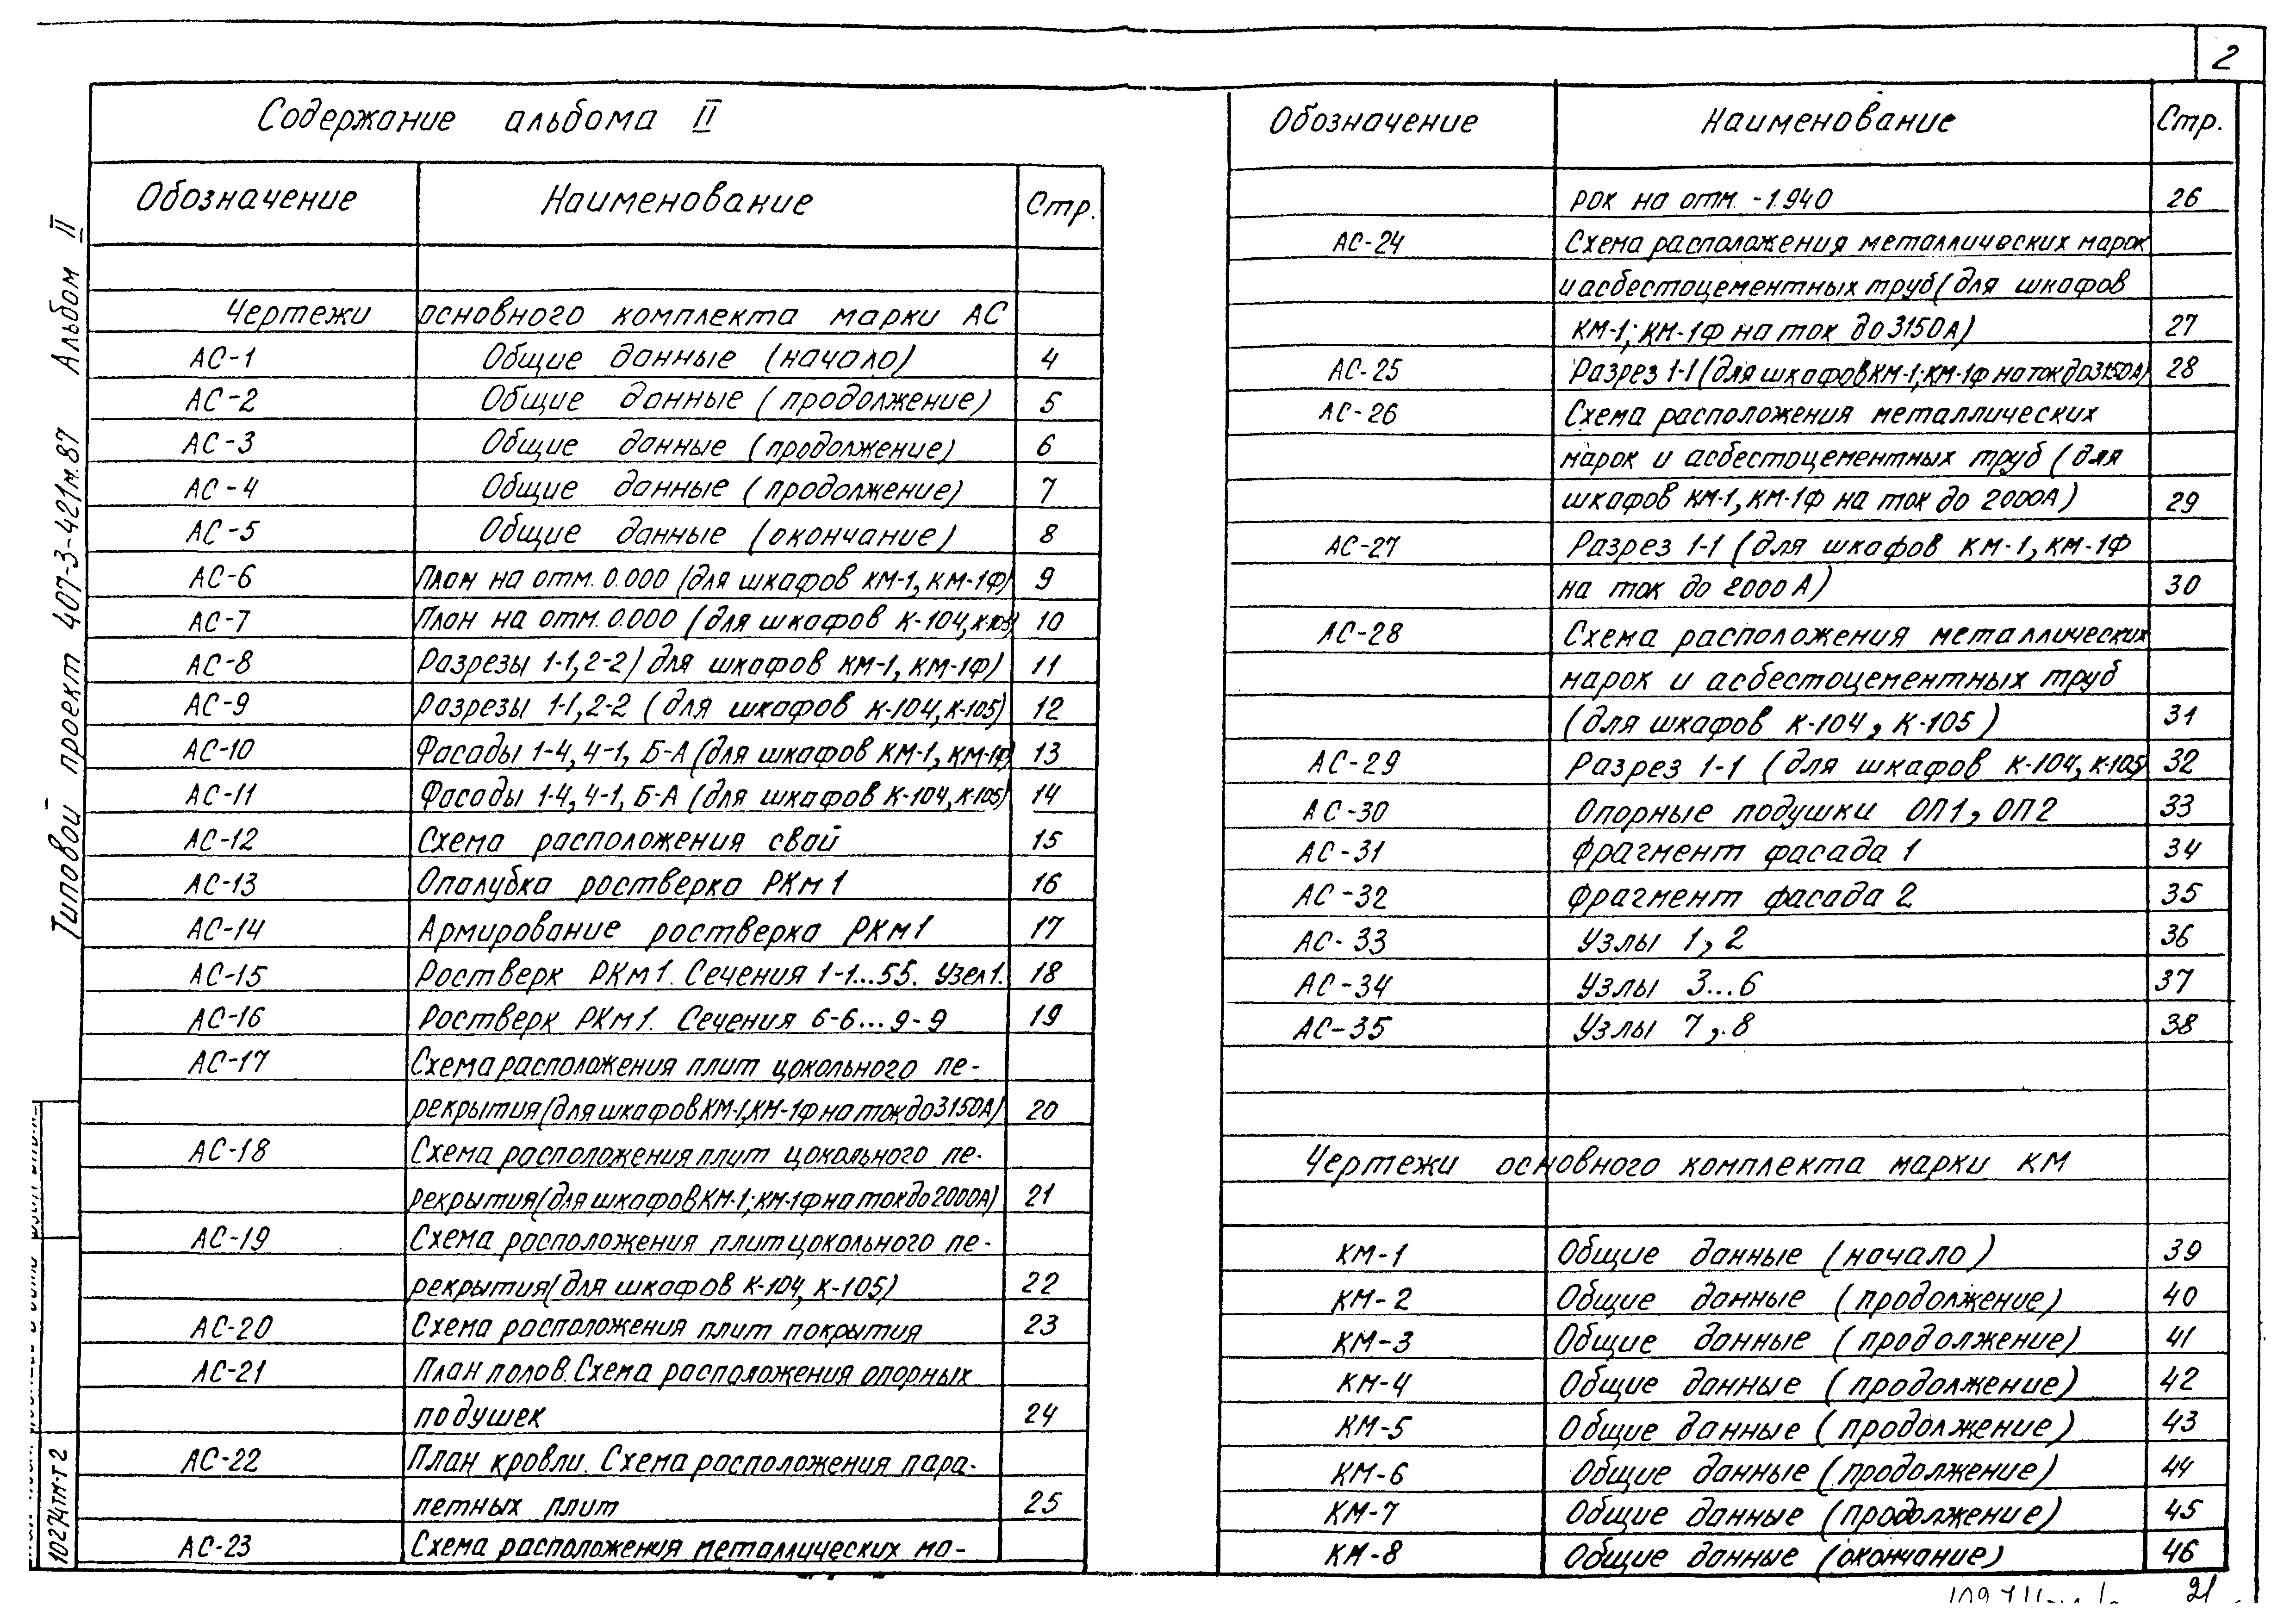 2
Содержание альбома II
Обозначение Наименование Стр.
Чертежи основного комплекта марки АС
АС-1 Общие данные (начало) 4
АС-2 Общие данные (продолжение) 5
АС-3 Общие данные (продолжение) 6
АС-4 Общие данные (продолжение) 7
АС-5 Общие данные (окончание) 8
АС-6 План на отм. 0.000 (для шкафов КМ-1, КМ-1Ф) 9
АС-7 План на отм. 0.000 (для шкафов К-104, К-105) 10
АС-8 Разрезы 1-1, 2-2) для шкафов КМ-1, КМ-1Ф) 11
АС-9 Разрезы 1-1, 2-2 (для шкафов К-104, К-105) 12
АС-10 Фасады 1-4, 4-1, Б-А (для шкафов КМ-1, КМ-1Ф) 13
АС-11 Фасады 1-4, 4-1, Б-А (для шкафов К-104, К-105) 14
АС-12 Схема расположения свай 15
АС-13 Опалубка ростверка РКм1 16
АС-14 Армирование ростверка РКм1 17
АС-15 Ростверк РКм1. Сечения 1-1...55. Узел 1. 18
АС-16 Ростверк РКм1. Сечения 6-6...9-9 19
АС-17 Схема расположения плит цокольного пе-
рекрытия (для шкафов КМ-1, КМ-1Ф на ток до 3150А) 20
АС-18 Схема расположения плит цокольного пе-
рекрытия (для шкафов КМ-1; КМ-1Ф на ток до 2000А) 21
АС-19 Схема расположения плит цокольного пе-
рекрытия (для шкафов К-104, К-105) 22
АС-20 Схема расположения плит покрытия 23
АС-21 План полов. Схема расположения опорных
подушек 24
АС-22 План кровли. Схема расположения пара-
петных плит 25
АС-23 Схема расположения металлических ма-
Обозначение Наименование Стр.
рок на отм. -1.940 26
АС-24 Схема расположения металлических марок
и асбестоцементных труб (для шкафов
КМ-1; КМ-1Ф на ток до 3150А) 27
АС-25 Разрез 1-1 (для шкафов КМ-1; КМ-1Ф на ток до 3150А) 28
АС-26 Схема расположения металлических
марок и асбестоцементных труб (для
шкафов КМ-1, КМ-1Ф на ток до 2000А) 29
АС-27 Разрез 1-1 (для шкафов КМ-1, КМ-1Ф
на ток до 2000 А) 30
АС-28 Схема расположения металлических
марок и асбестоцементных труб
(для шкафов К-104, К-105) 31
АС-29 Разрез 1-1 (для шкафов К-104, К-105) 32
АС-30 Опорные подушки ОП1, ОП2 33
АС-31 Фрагмент фасада 1 34
АС-32 Фрагмент фасада 2 35
АС-33 Узлы 1, 2 36
АС-34 Узлы 3...6 37
АС-35 Узлы 7, 8 38
Чертежи основного комплекта марки КМ
КМ-1 Общие данные (начало) 39
КМ-2 Общие данные (продолжение) 40
КМ-3 Общие данные (продолжение) 41
КМ-4 Общие данные (продолжение) 42
КМ-5 Общие данные (продолжение) 43
КМ-6 Общие данные (продолжение) 44
КМ-7 Общие данные (продолжение) 45
КМ-8 Общие данные (окончание) 46
Типовой проект 407-3-421м.87 Альбом II
10274тм-т2
21